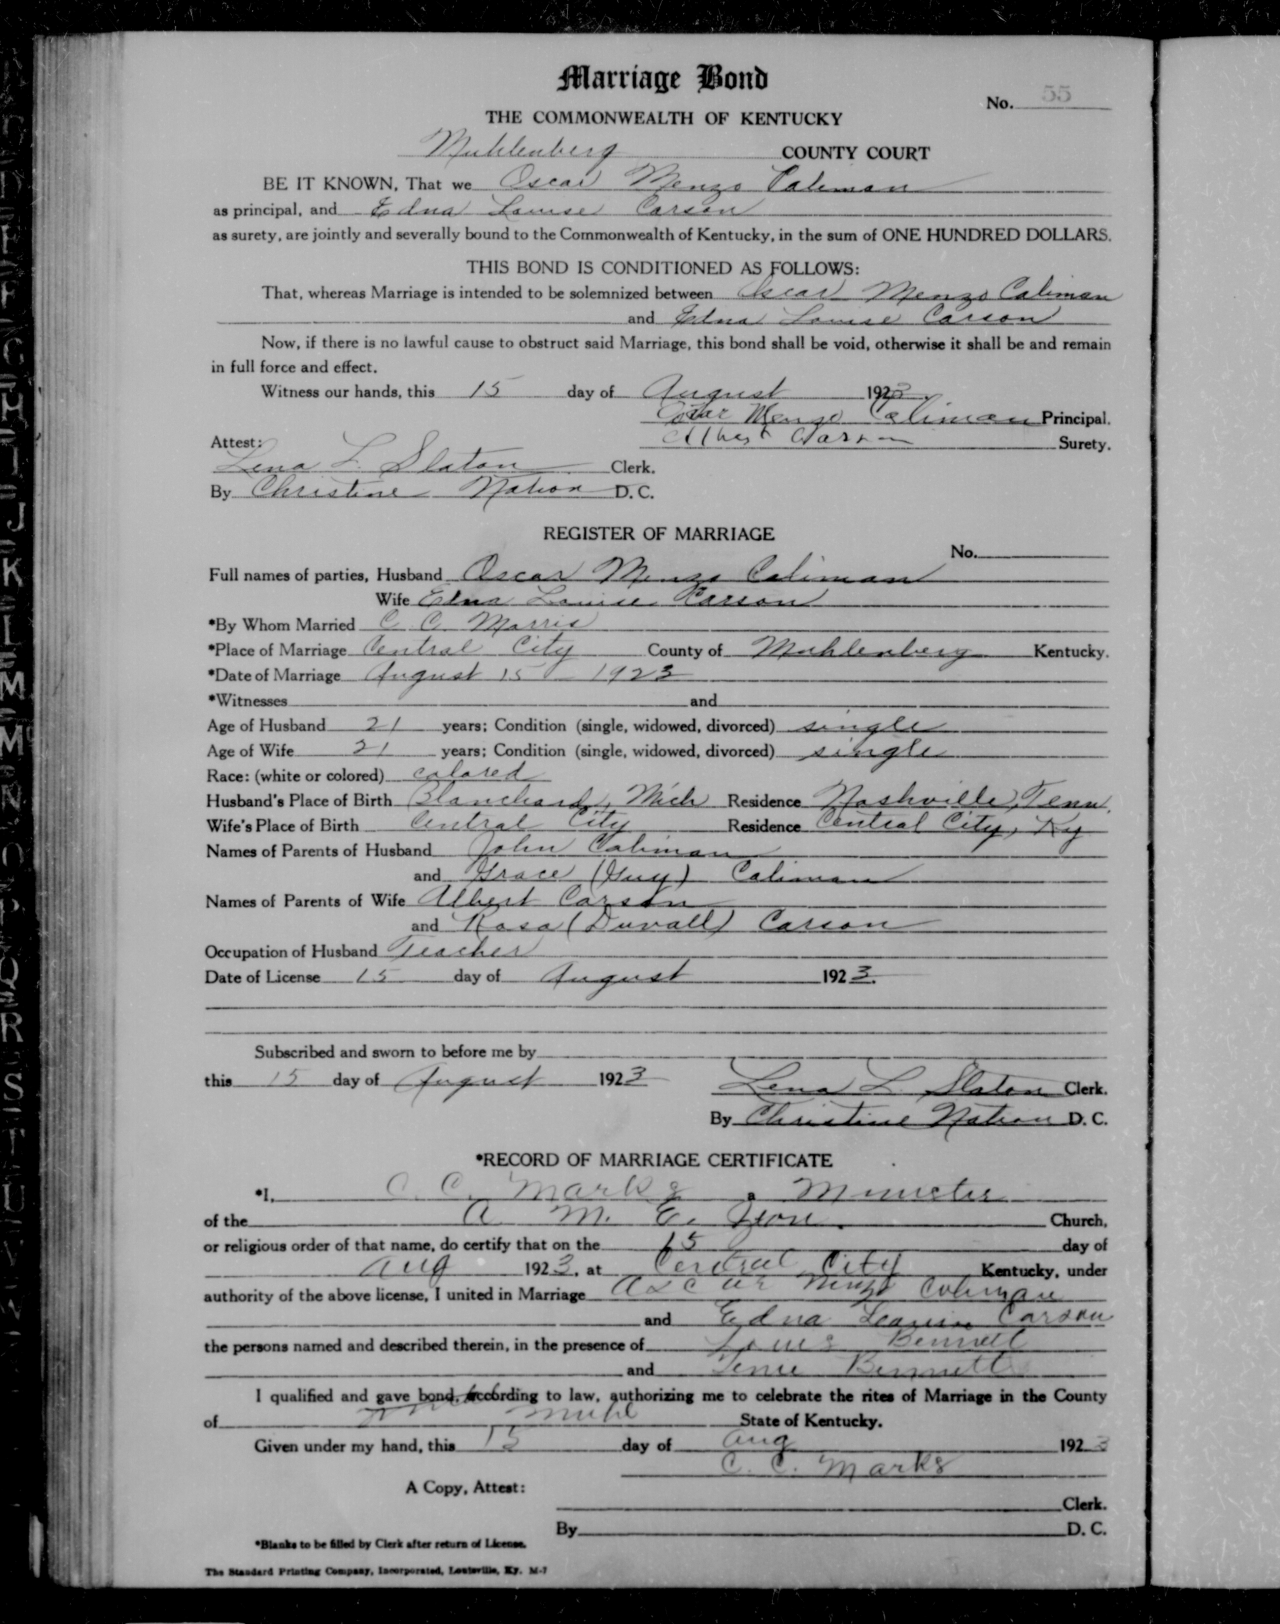 Marriage Bond
No. 55
THE COMMONWEALTH OF KENTUCKY
Muhlenberg COUNTY COURT
BE IT KNOWN, That we Oscar Menzo Caliman
as principal, and Edna Louise Carson
as surety, are jointly and severally bound to the Commonwealth of Kentucky, in the sum of ONE HUNDRED DOLLARS.
THIS BOND IS CONDITIONED AS FOLLOWS:
That, whereas Marriage is intended to be solemnized between Oscar Menzo Caliman
and Edna Louise Carson
Now, if there is no lawful cause to obstruct said Marriage, this bond shall be void, otherwise it shall be and remain
in full force and effect.
Witness our hands, this 15 day of August 1923
Oscar Menzo Caliman Principal.
Albert Carson Surety.
Attest:
Lena L. Slaton Clerk.
By Christine Nation D. C.
REGISTER OF MARRIAGE
No.
Full names of parties, Husband Oscar Menzo Caliman
Wife Edna Louise Carson
*By Whom Married C. C. Marris
*Place of Marriage Central City County of Muhlenberg Kentucky.
*Date of Marriage August 15 - 1923
*Witnesses and
Age of Husband 21 years; Condition (single, widowed, divorced) single
Age of Wife 21 years; Condition (single, widowed, divorced) single
Race: (white or colored) colored
Husband's Place of Birth Blanchard, Mich Residence Nashville, Tenn.
Wife's Place of Birth Central City Residence Central City, Ky
Names of Parents of Husband John Caliman
and Grace (Guy) Caliman
Names of Parents of Wife Albert Carson
and Rosa (Duvall) Carson
Occupation of Husband Teacher
Date of License 15 day of August 1923.
Subscribed and sworn to before me by
this 15 day of August 1923
Lena L. Slaton Clerk.
By Christine Nation D. C.
*RECORD OF MARRIAGE CERTIFICATE
*I, C. C. Marks a Minister
of the A. M. E. Zion. Church,
or religious order of that name, do certify that on the 15 day of
Aug 1923, at Central City Kentucky, under
authority of the above license, I united in Marriage Menzo Coliman
and Edna Carson
the persons named and described therein, in the presence of Bennett
and Bennett
I qualified and gave bond, according to law, authorizing me to celebrate the rites of Marriage in the County
of Muhl State of Kentucky.
Given under my hand, this 15 day of Aug 1923
C. C. Marks
A Copy, Attest:
Clerk.
By D. C.
*Blanks to be filled by Clerk after return of License.
The Standard Printing Company, Incorporated, Louisville, Ky. M-7
D
E
F
G
H
I
J
K
L
M
Mc
N
O
P
Q
R
S
T
U
V